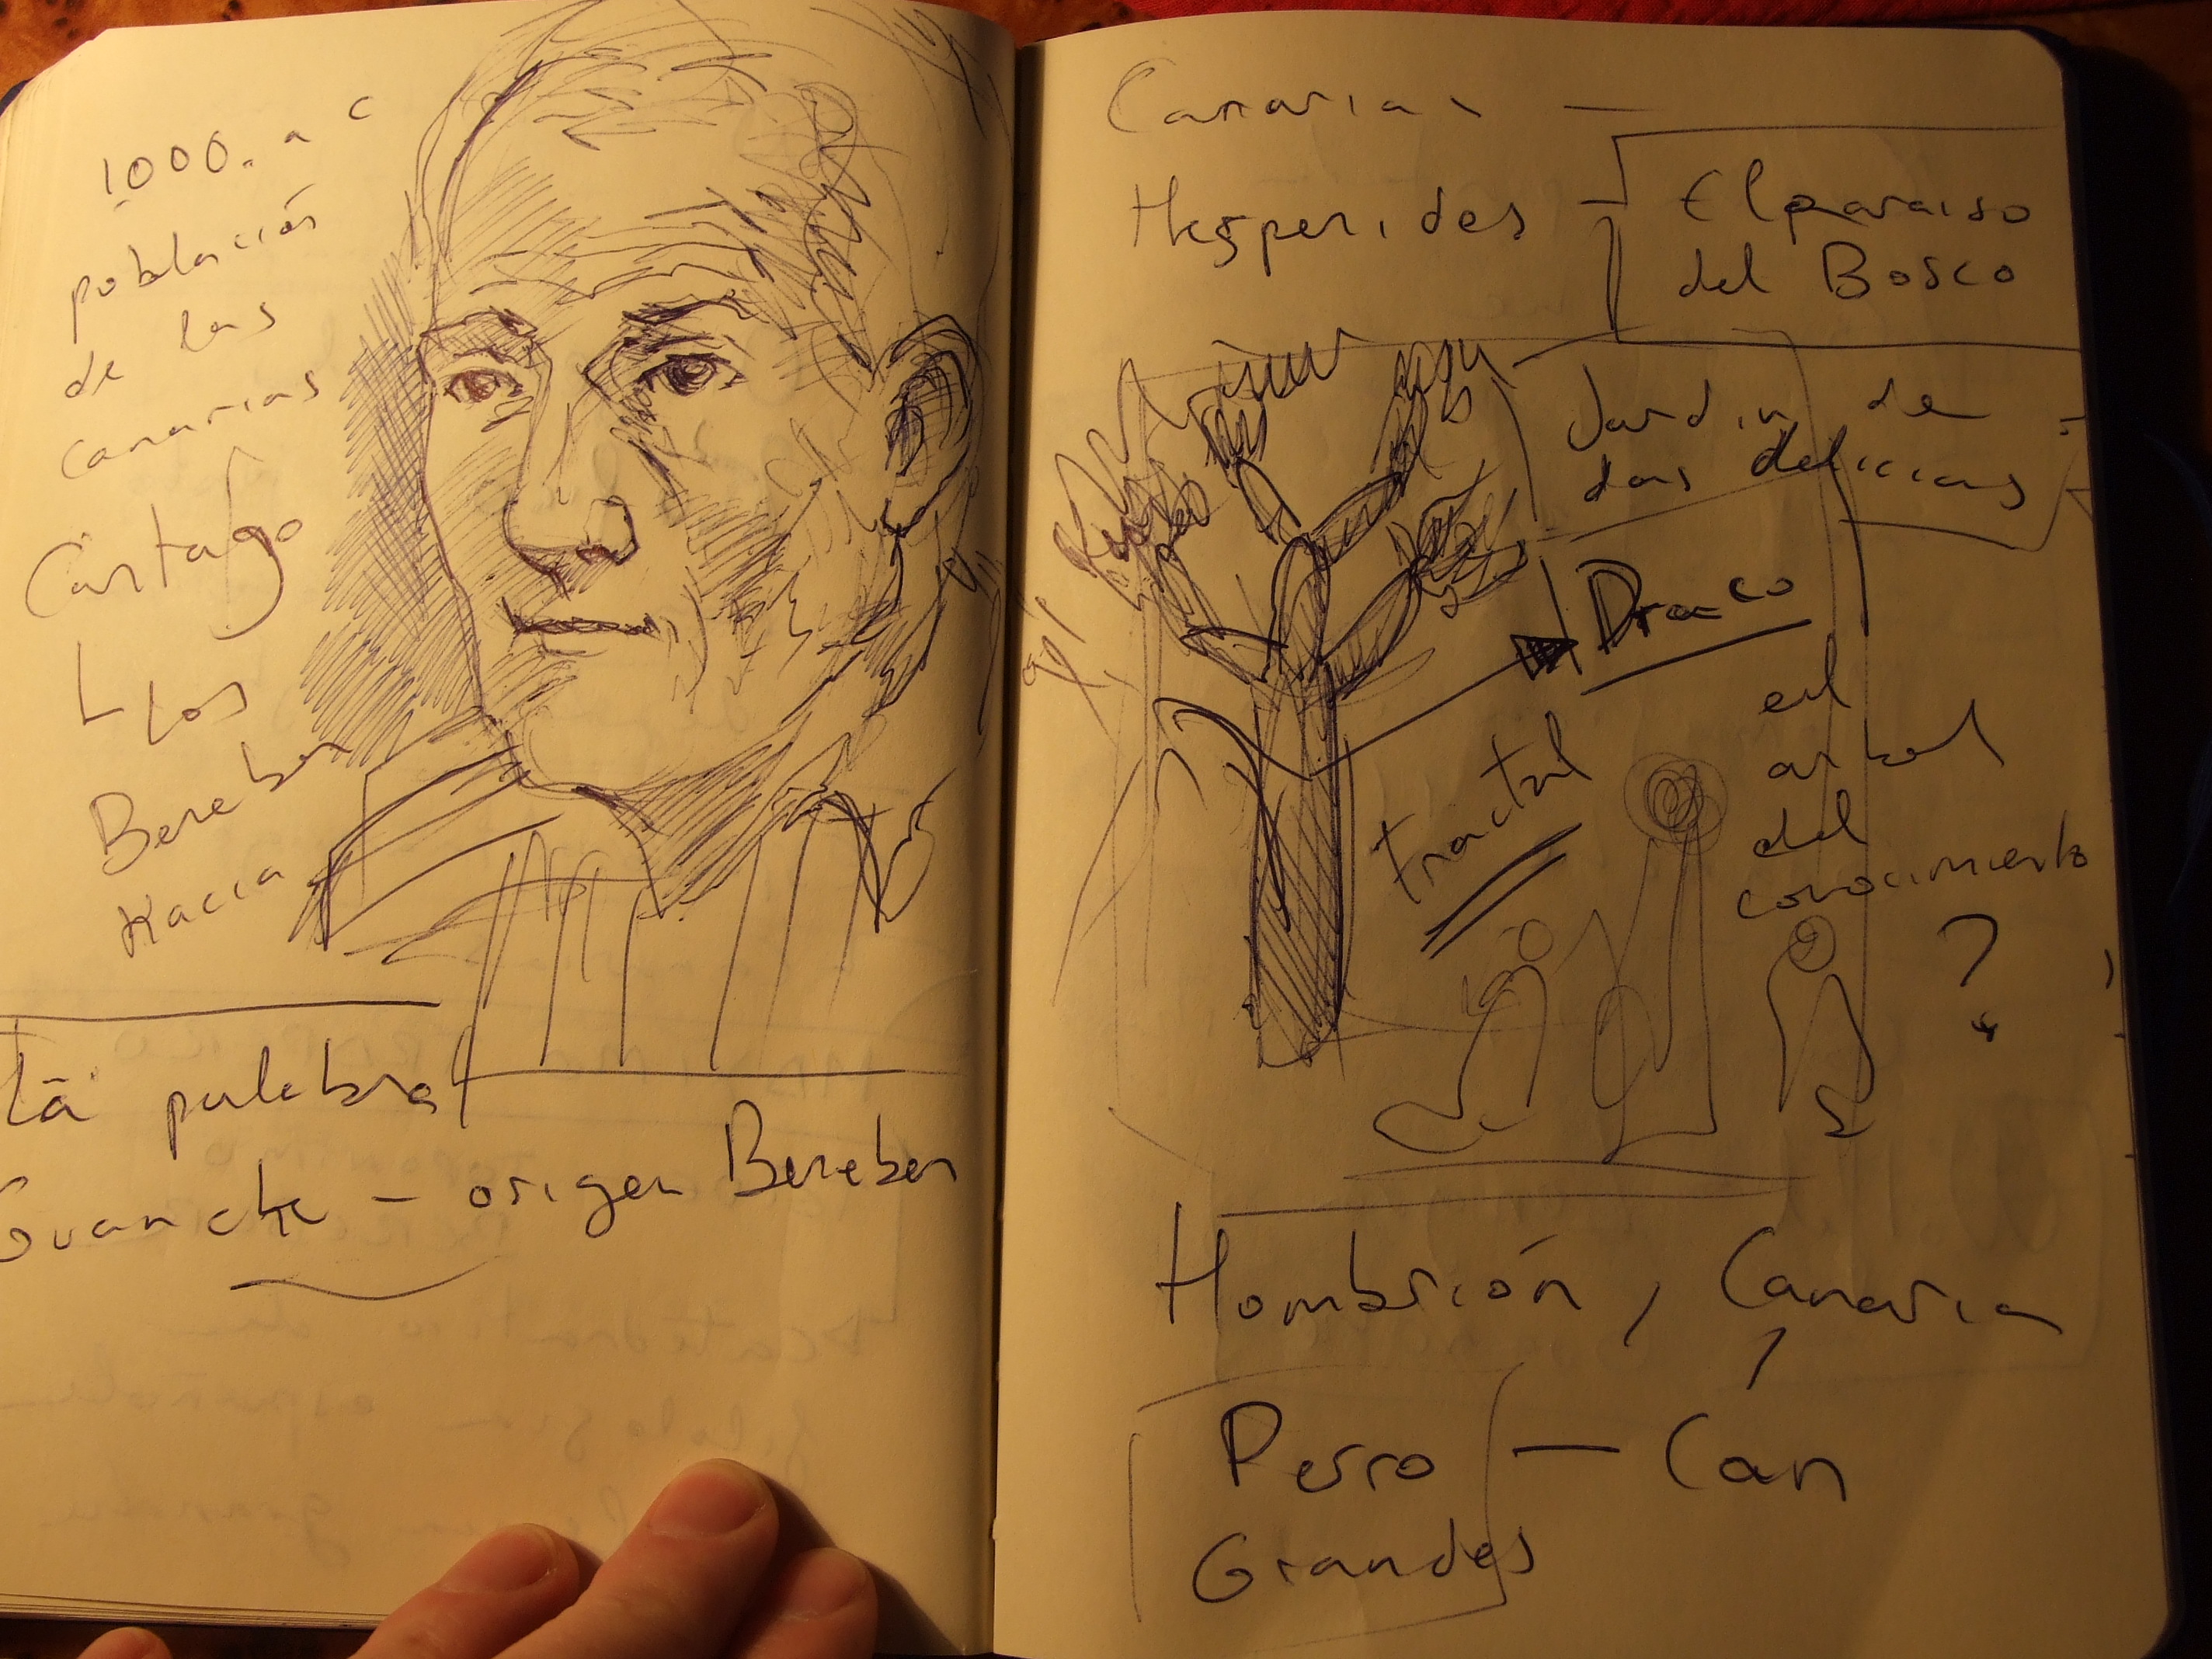 1000. a c
población
de las
canarias
Cartago
los
Bereber
Hacia
La palabra
Guanche - origen Bereber
Canarias -
Hesperides -
El paraiso
del Bosco
Jardin de
las delicias
Draco
fractal
el
arbol
del
conocimiento
?
Hombrión, Canaria
Perro - Can
Grandes